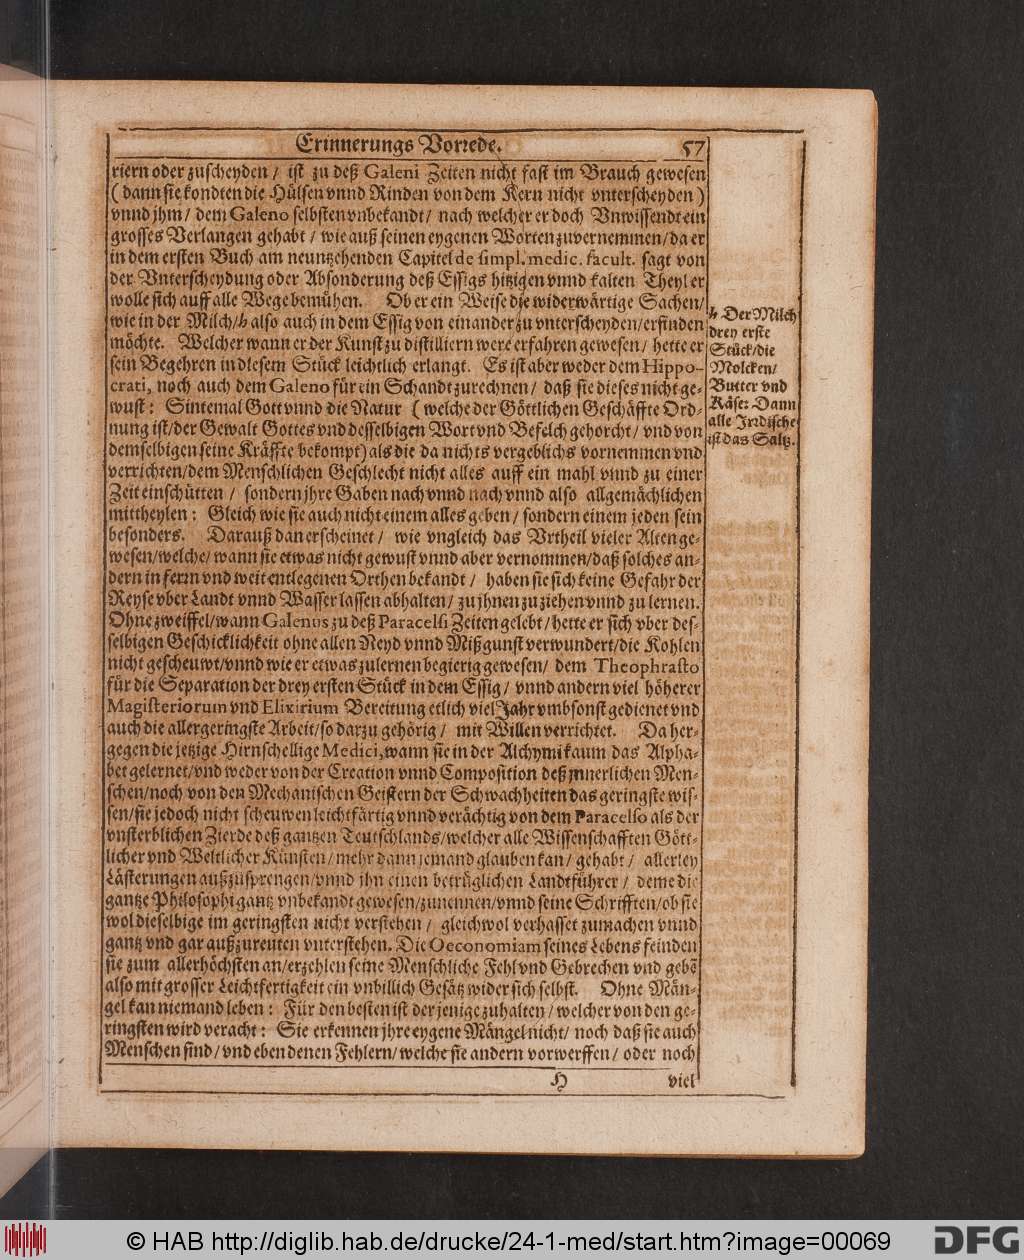 Erinnerungs Vorrede. 57
riern oder zuscheyden / ist zu deß Galeni Zeiten nicht fast im Brauch gewesen
( dann sie kondten die Hülsen vnnd Rinden von dem Kern nicht vnterscheyden )
vnnd jhm / dem Galeno selbsten vnbekandt / nach welcher er doch Vnwissendt ein
grosses Verlangen gehabt / wie auß seinen eygenen Worten zuvernemmen / da er
in dem ersten Buch am neuntzehenden Capitel de simpl. medic. facult. sagt von
der Vnterscheydung oder Absonderung deß Essigs hitzigen vnnd kalten Theyl er
wolle sich auff alle Wege bemühen. Ob er ein Weise die widerwärtige Sachen /
wie in der Milch / h also auch in dem Essig von einander zu vnterscheyden / erfinden
möchte. Welcher wann er der Kunst zu distilliern were erfahren gewesen / hette er
sein Begehren in diesem Stück leichtlich erlangt. Es ist aber weder dem Hippo-
crati, noch auch dem Galeno für ein Schandt zurechnen / daß sie dieses nicht ge-
wust : Sintemal Gott vnnd die Natur ( welche der Göttlichen Geschäffte Ord-
nung ist / der Gewalt Gottes vnd desselbigen Wort vnd Befelch gehorcht / vnd von
demselbigen seine Kräffte bekompt ) als die da nichts vergeblichs vornemmen vnd
verrichten / dem Menschlichen Geschlecht nicht alles auff ein mahl vnnd zu einer
Zeit einschütten / sondern jhre Gaben nach vnnd nach vnnd also allgemächlichen
mittheylen : Gleich wie sie auch nicht einem alles geben / sondern einem jeden sein
besonders. Darauß dan erscheinet / wie vngleich das Vrtheil vieler Alten ge-
wesen / welche / wann sie etwas nicht gewust vnnd aber vernommen / daß solches an-
dern in fern vnd weit entlegenen Orthen bekandt / haben sie sich keine Gefahr der
Reyse vber Landt vnnd Wasser lassen abhalten / zu jhnen zu ziehen vnnd zu lernen.
Ohne zweiffel / wann Galenus zu deß Paracelsi Zeiten gelebt / hette er sich vber des-
selbigen Geschicklichkeit ohne allen Neyd vnnd Mißgunst verwundert / die Kohlen
nicht gescheuwt / vnnd wie er etwas zulernen begierig gewesen / dem Theophrasto
für die Separation der drey ersten Stück in dem Essig / vnnd andern viel höherer
Magisteriorum vnd Elixirium Bereitung etlich viel Jahr vmbsonst gedienet vnd
auch die allergeringste Arbeit / so darzu gehörig / mit Willen verrichtet. Da her-
gegen die jetzige Hirnschellige Medici, wann sie in der Alchymi kaum das Alpha-
bet gelernet / vnd weder von der Creation vnnd Composition deß jnnerlichen Men-
schen / noch von den Mechanischen Geistern der Schwachheiten das geringste wis-
sen / sie jedoch nicht scheuwen leichtfärtig vnnd verächtig von dem Paracelso als der
vnsterblichen Zierde deß gantzen Teutschlands / welcher alle Wissenschafften Gött-
licher vnd Weltlicher Künsten / mehr dann jemand glauben kan / gehabt / allerley
Lästerungen außzusprengen / vnnd jhn einen betrüglichen Landtführer / deme die
gantze Philosophi gantz vnbekandt gewesen / zunennen / vnnd seine Schrifften / ob sie
wol dieselbige im geringsten nicht verstehen / gleichwol verhasset zumachen vnnd
gantz vnd gar außzureuten vnterstehen. Die Oeconomiam seines Lebens feinden
sie zum allerhöchsten an / erzehlen seine Menschliche Fehl vnd Gebrechen vnd gebē
also mit grosser Leichtfertigkeit ein vnbillich Gesätz wider sich selbst. Ohne Män-
gel kan niemand leben : Für den besten ist der jenige zuhalten / welcher von den ge-
ringsten wird veracht : Sie erkennen jhre eygene Mängel nicht / noch daß sie auch
Menschen sind / vnd eben denen Fehlern / welche sie andern vorwerffen / oder noch
H viel
h Der Milch
drey erste
Stück / die
Molcken /
Butter vnd
Käse: Dann
alle Irrdische
ist das Saltz.
© HAB http://diglib.hab.de/drucke/24-1-med/start.htm?image=00069
DFG